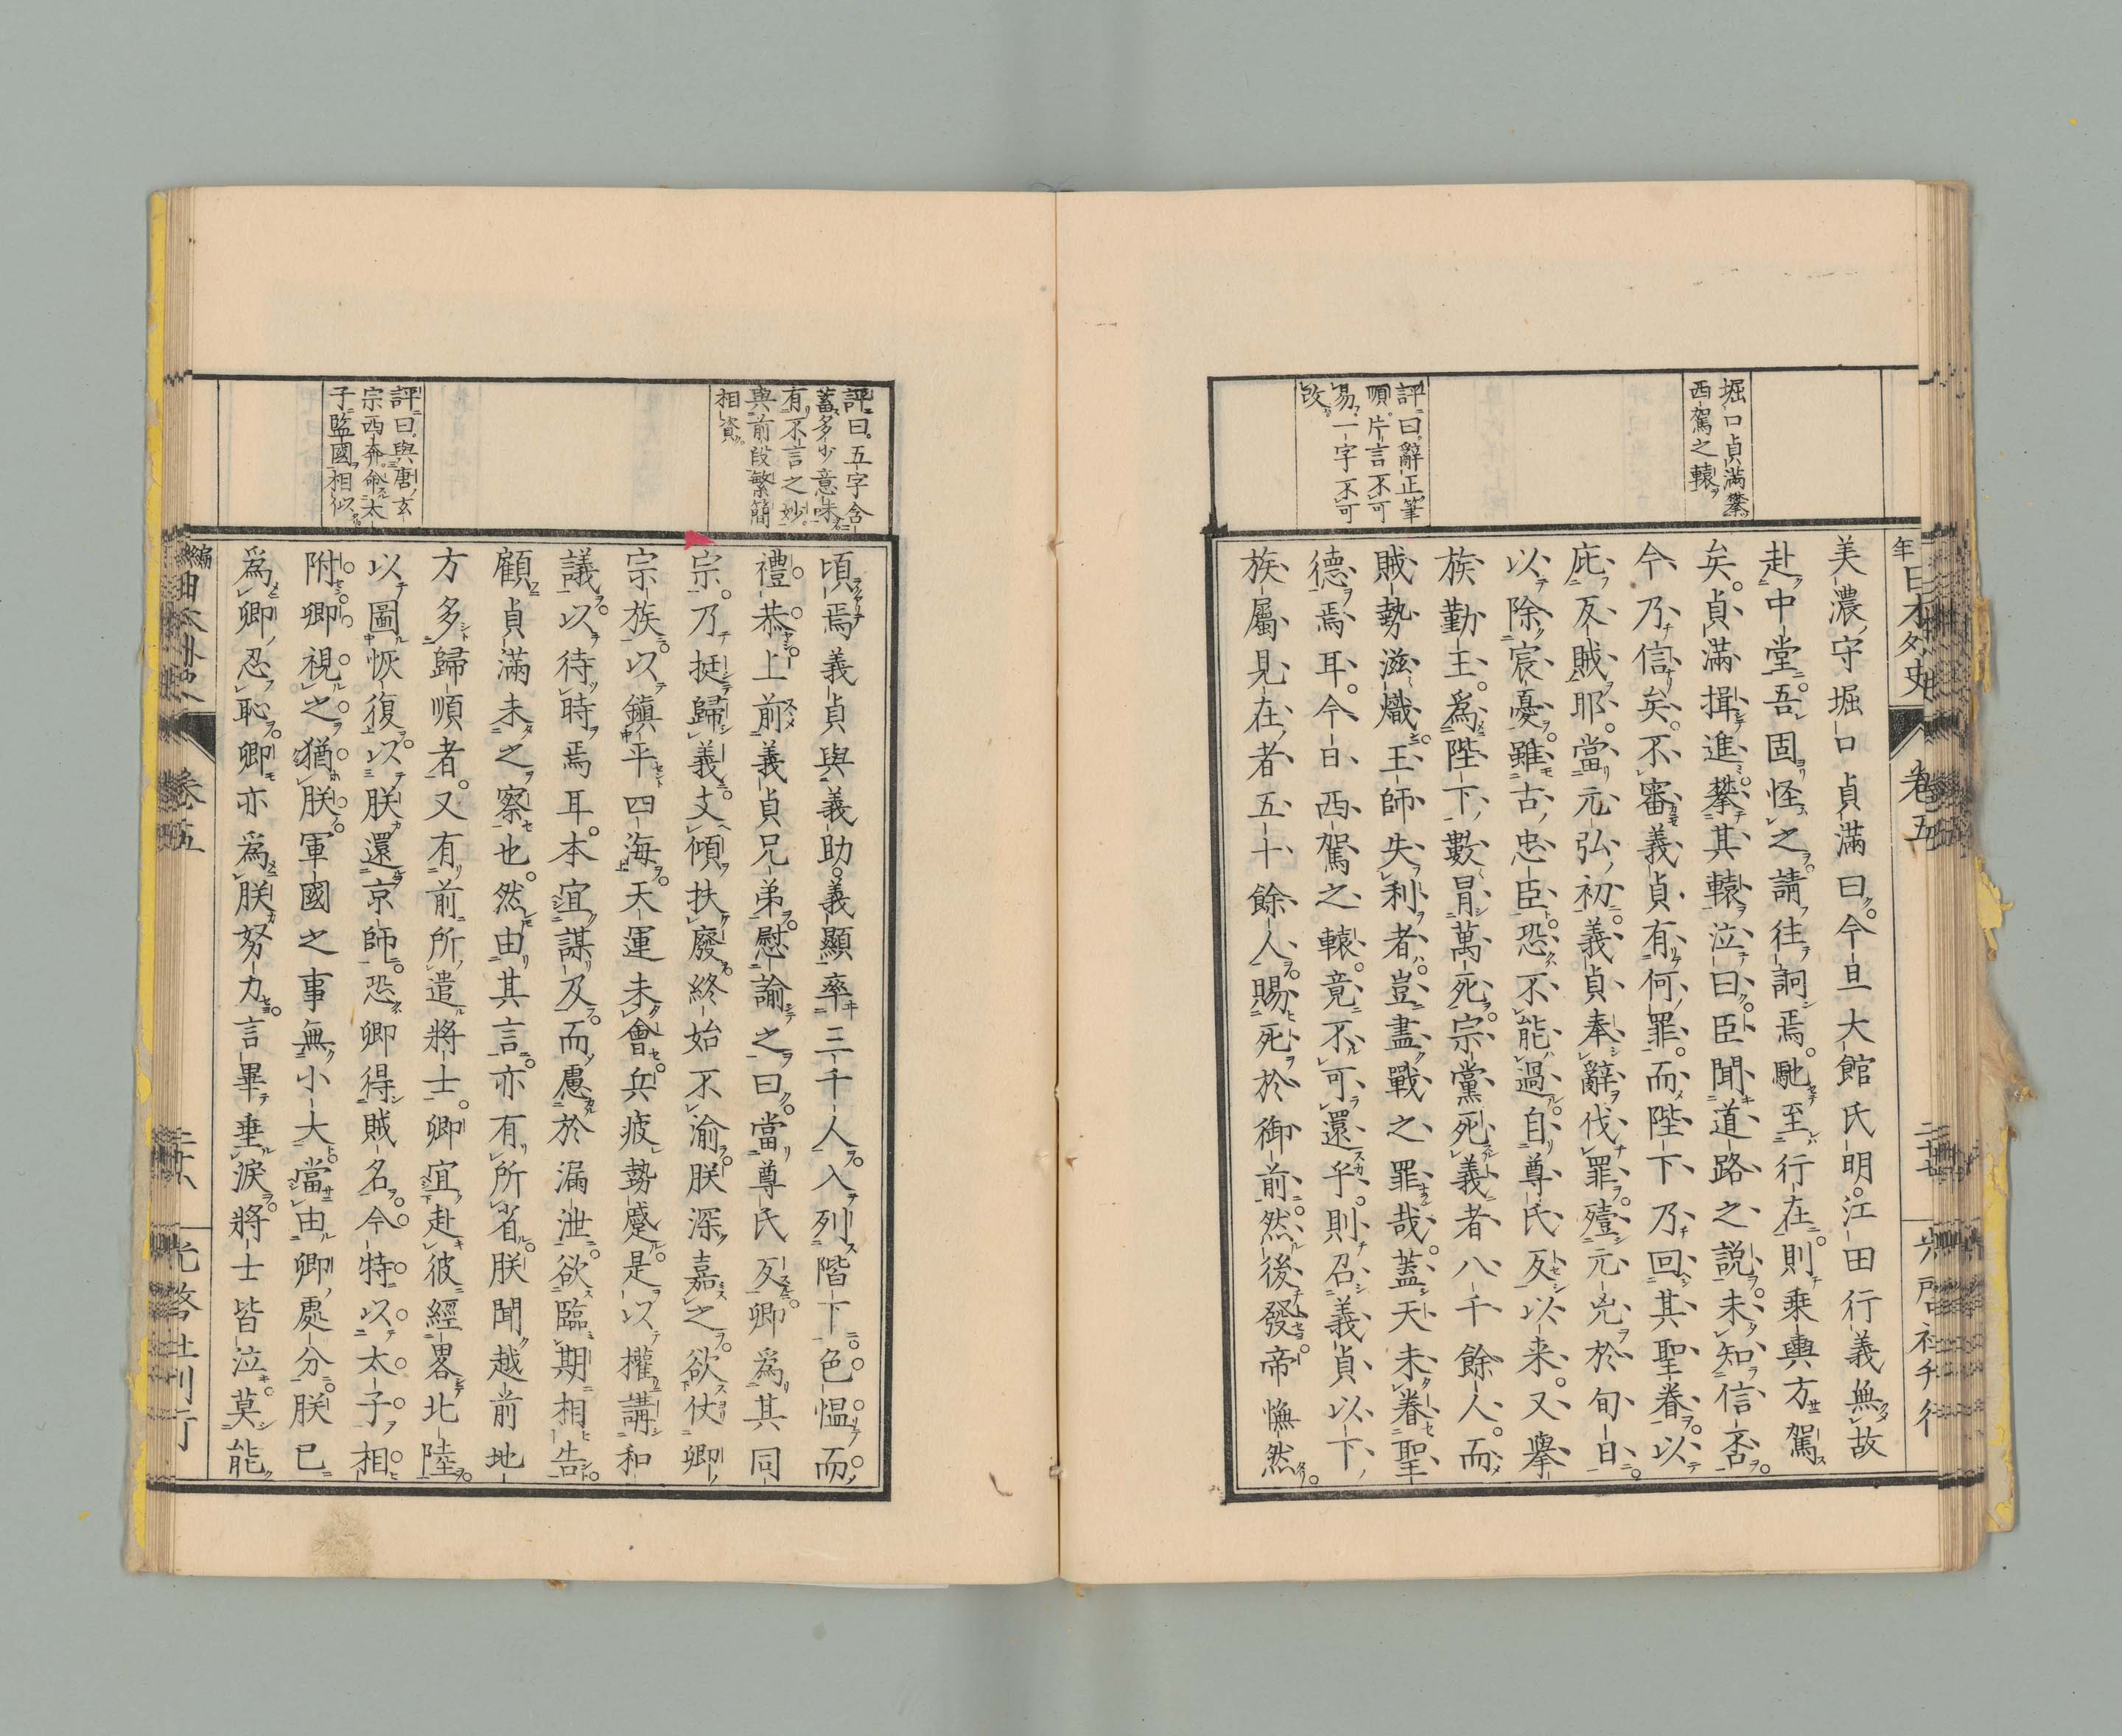 堀口貞滿攀
西駕之轅
評曰辭正筆
順片言不可
易一字不可
改
年日本外史 卷五 二十七 光啓社刊行
美濃守堀口貞滿曰今旦大館氏明江田行義無故
赴中堂吾固怪之請往詗焉馳至行在則乗輿方駕
矣貞滿揖進攀其轅泣曰臣聞道路之説未知信否
今乃信矣不審義貞有何罪而陛下乃回其聖眷以
庇反賊耶當元弘初義貞奉辭伐罪殪元兇於旬日
以除宸憂雖古忠臣恐不能過自尊氏反以来又擧
族勤王爲陛下數冒萬死宗黨死義者八千餘人而
賊勢滋熾王師失利者豈盡戰之罪哉蓋天未眷聖
德焉耳今日西駕之轅竟不可還乎則召義貞以下
族屬見在者五十餘人賜死於御前然後發帝憮然
評曰五字含
蓄多少意味
有不言之妙
與前段繁簡
相資
評曰與唐玄
宗西奔命太
子監國相似
頃焉義貞與義助義顯率三千人入列階下色愠而
禮恭上前義貞兄弟慰諭之曰當尊氏反卿爲其同
宗乃挺歸義支傾扶廢終始不渝朕深嘉之欲仗卿
宗族以鎭平四海天運未會兵疲勢蹙是以權講和
議以待時焉耳本宜謀及而慮於漏泄欲臨期相告
顧貞滿未之察也然由其言亦有所省朕聞越前地
方多歸順者又有前所遣將士卿宜赴彼經畧北陸
以圖恢復以朕還京師恐卿得賊名今特以太子相
附卿視之猶朕軍國之事無小大當由卿處分朕已
爲卿忍恥卿亦爲朕努力言畢垂淚將士皆泣莫能
卷五 光啓社刊行